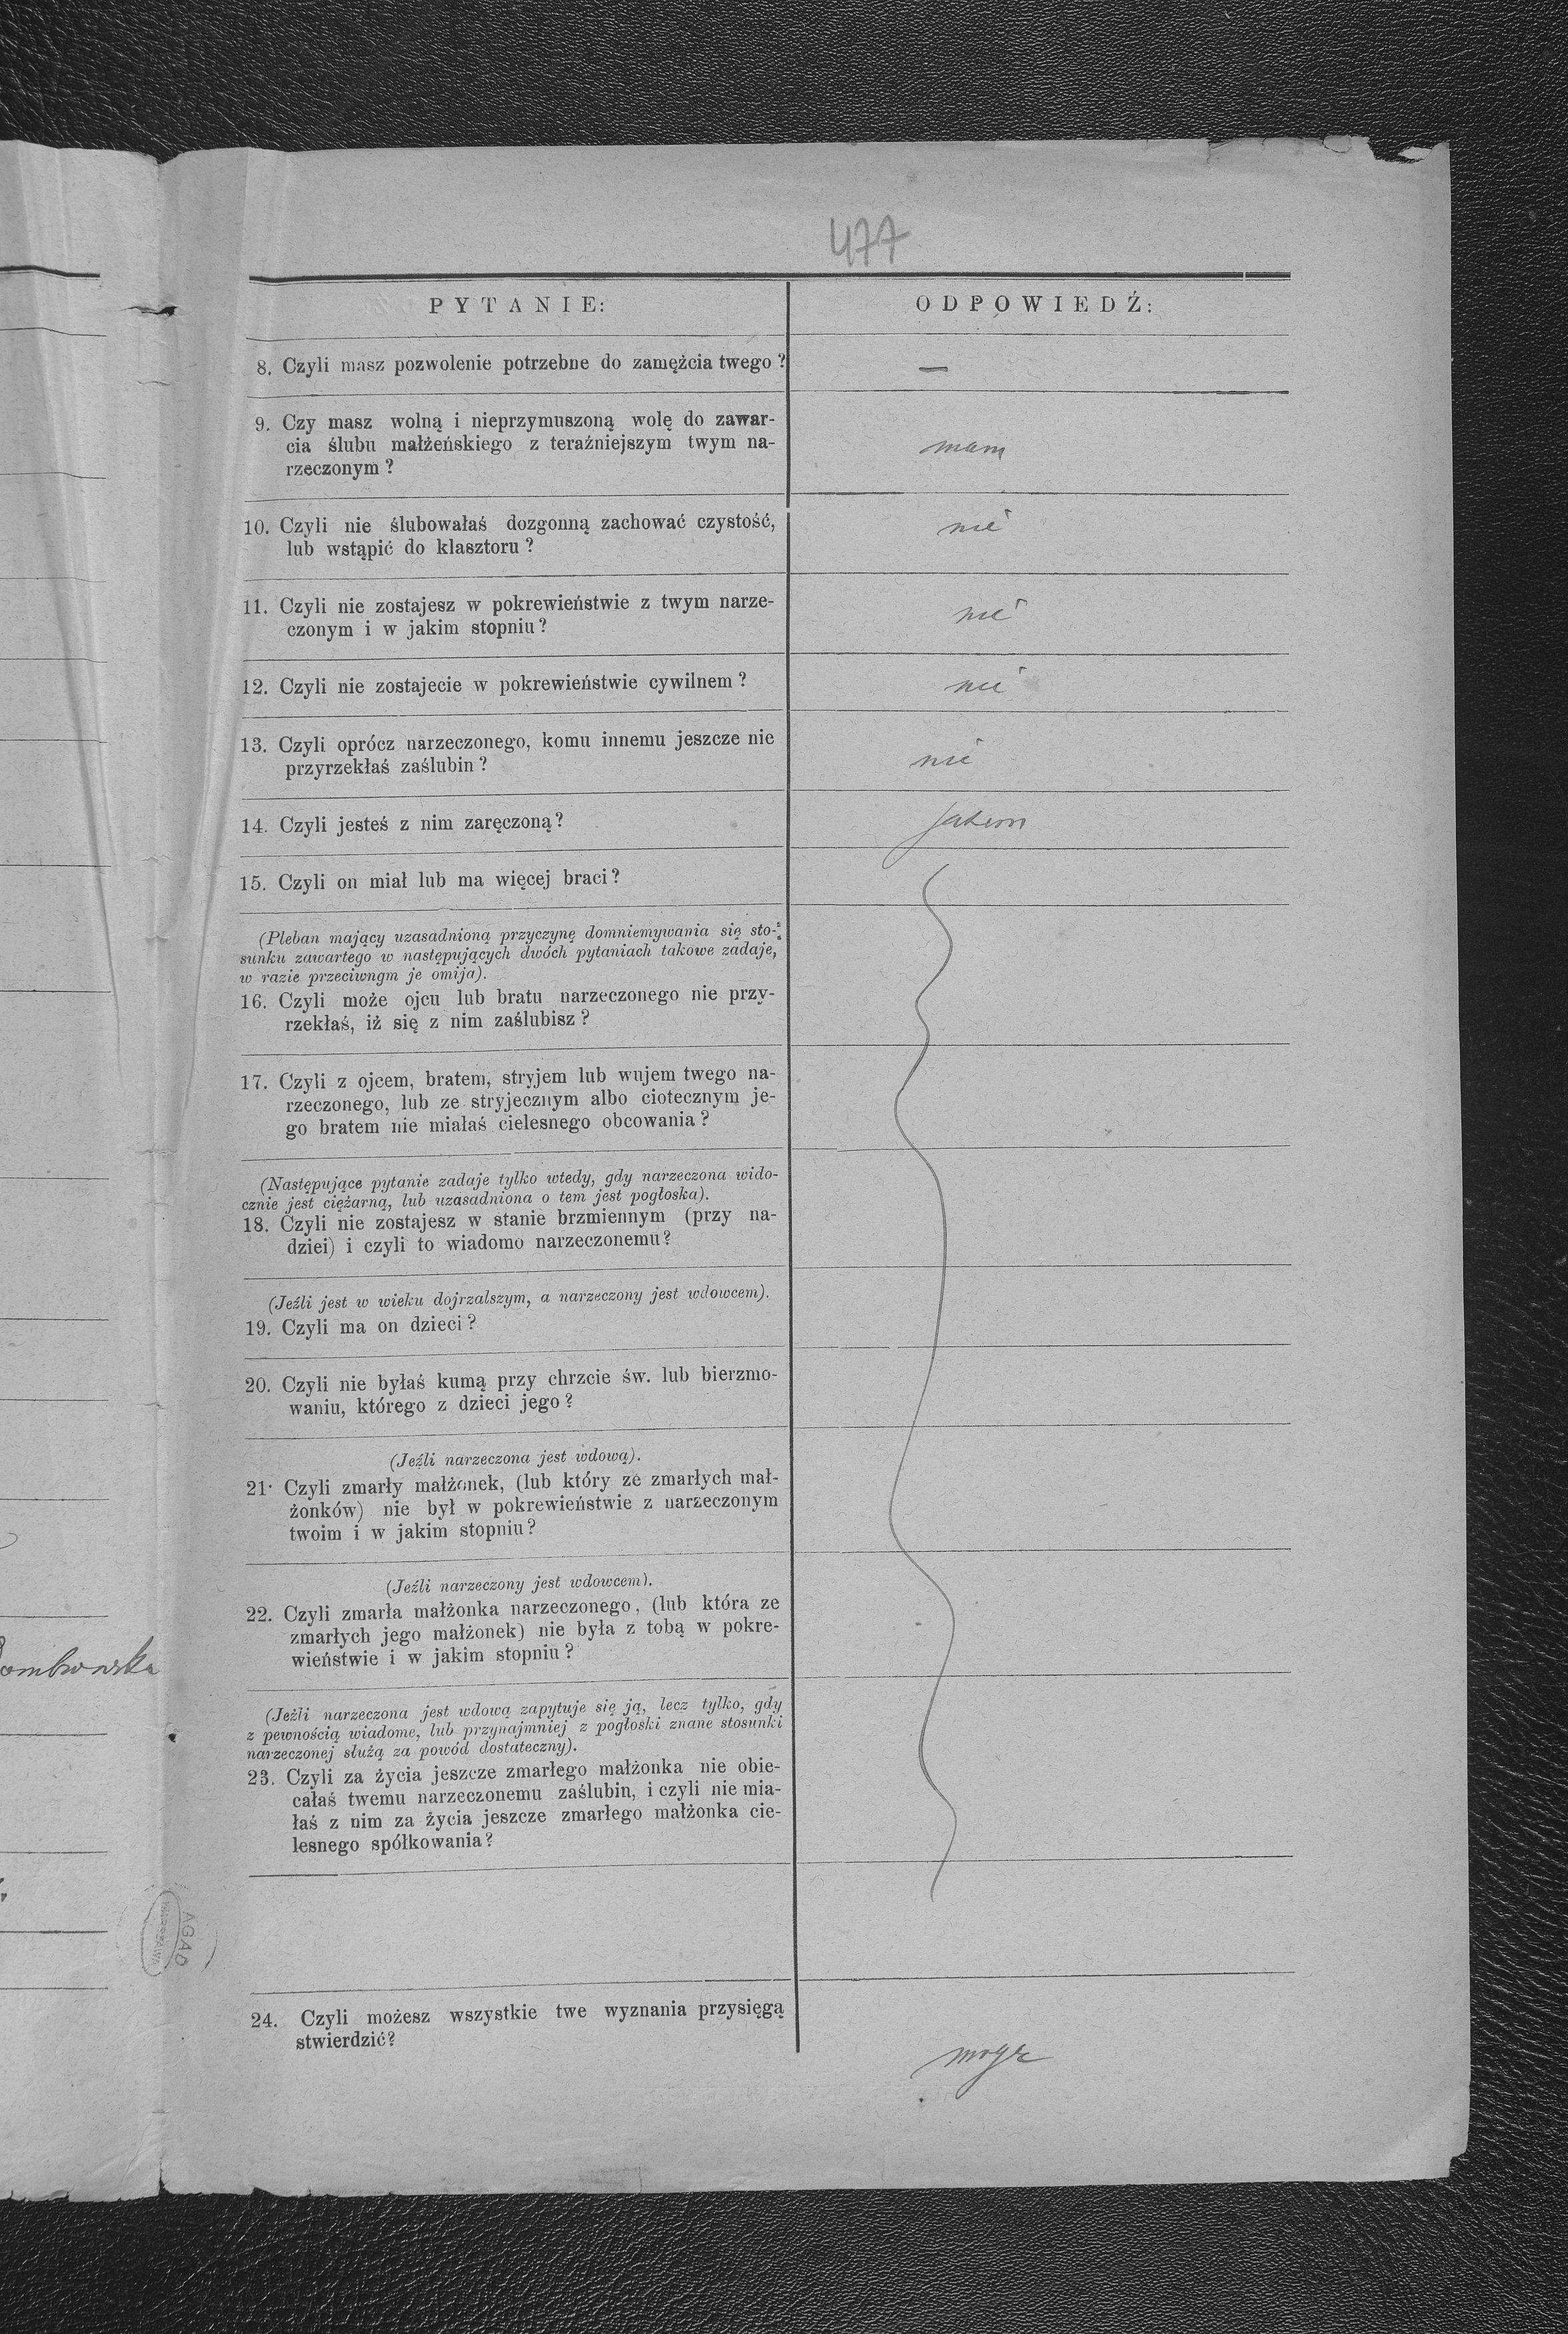 477
PYTANIE:
ODPOWIEDŹ:
8. Czyli masz pozwolenie potrzebne do zamężcia twego ?
—
9. Czy masz wolną i nieprzymuszoną wolę do zawar-
cia ślubu małżeńskiego z teraźniejszym twym na-
rzeczonym ?
mam
10. Czyli nie ślubowałaś dozgonną zachować czystość,
lub wstąpić do klasztoru ?
nie
11. Czyli nie zostajesz w pokrewieństwie z twym narze-
czonym i w jakim stopniu ?
nie
12. Czyli nie zostajecie w pokrewieństwie cywilnem ?
nie
13. Czyli oprócz narzeczonego, komu innemu jeszcze nie
przyrzekłaś zaślubin ?
nie
14. Czyli jesteś z nim zaręczoną ?
15. Czyli on miał lub ma więcej braci ?
(Pleban mający uzasadnioną przyczynę domniemywania się sto-
sunku zawartego w następujących dwóch pytaniach takowe zadaje,
w razie przeciwngm je omija).
16. Czyli może ojcu lub bratu narzeczonego nie przy-
rzekłaś, iż się z nim zaślubisz ?
17. Czyli z ojcem, bratem, stryjem lub wujem twego na-
rzeczonego, lub ze stryjecznym albo ciotecznym je-
go bratem nie miałaś cielesnego obcowania ?
(Następujące pytanie zadaje tylko wtedy, gdy narzeczona wido-
cznie jest ciężarną, lub uzasadniona o tem jest pogłoska).
18. Czyli nie zostajesz w stanie brzmiennym (przy na-
dziei) i czyli to wiadomo narzeczonemu ?
(Jeźli jest w wieku dojrzalszym, a narzeczony jest wdowcem).
19. Czyli ma on dzieci ?
20. Czyli nie byłaś kumą przy chrzcie św. lub bierzmo-
waniu, którego z dzieci jego ?
(Jeźli narzeczona jest wdową).
21. Czyli zmarły małżonek, (lub który ze zmarłych mał-
żonków) nie był w pokrewieństwie z narzeczonym
twoim i w jakim stopniu ?
(Jeźli narzeczony jest wdowcem).
22. Czyli zmarła małżonka narzeczonego, (lub która ze
zmarłych jego małżonek) nie była z tobą w pokre-
wieństwie i w jakim stopniu ?
(Jeźli narzeczona jest wdową zapytuje się ją, lecz tylko, gdy
z pewnością wiadome, lub przynajmniej z pogłoski znane stosunki
narzeczonej służą za powód dostateczny).
23. Czyli za życia jeszcze zmarłego małżonka nie obie-
całaś twemu narzeczonemu zaślubin, i czyli nie mia-
łaś z nim za życia jeszcze zmarłego małżonka cie-
lesnego spółkowania ?
24. Czyli możesz wszystkie twe wyznania przysięgą
stwierdzić?
mogę
AGAD
WARSZAWA